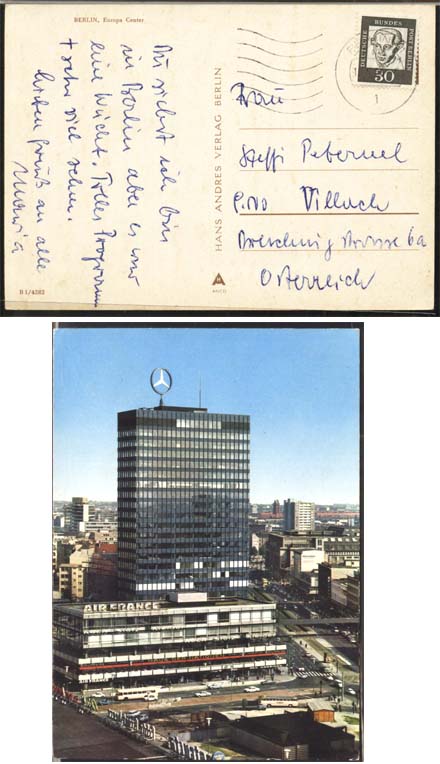 BERLIN, Europa Center
Du siehst ich bin
in Berlin aber es war
eine Wucht. Tolles Programm
+ sehr viel sehen.
lieben Gruß an alle
Maria
B 1/4282
HANS ANDRES VERLAG BERLIN
DEUTSCHE BUNDES POST BERLIN
30
1
Frau
Steffi Petermel
Villach
6a
Österreich
AIR FRANCE